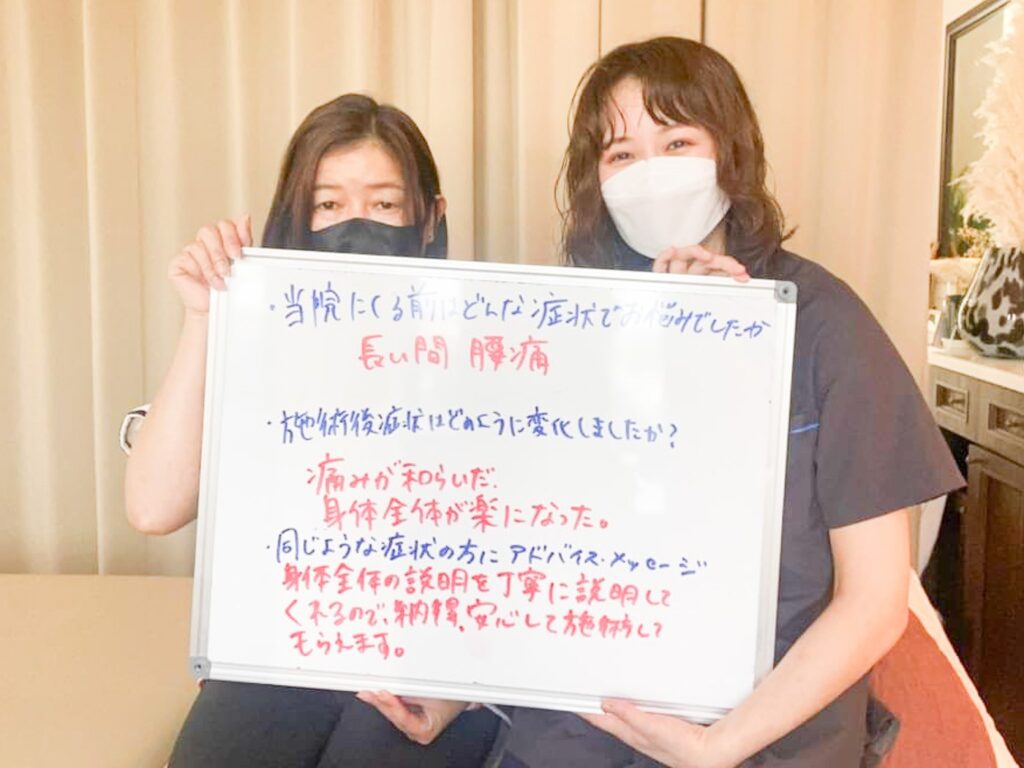 ・当院にくる前はどんな症状でお悩みでしたか
長い間 腰痛
・施術後症状はどのように変化しましたか？
痛みが和らいだ.
身体全体が楽になった。
・同じような症状の方にアドバイス・メッセージ
身体全体の説明を丁寧に説明して
くれるので、納得、安心して施術して
もらえます。